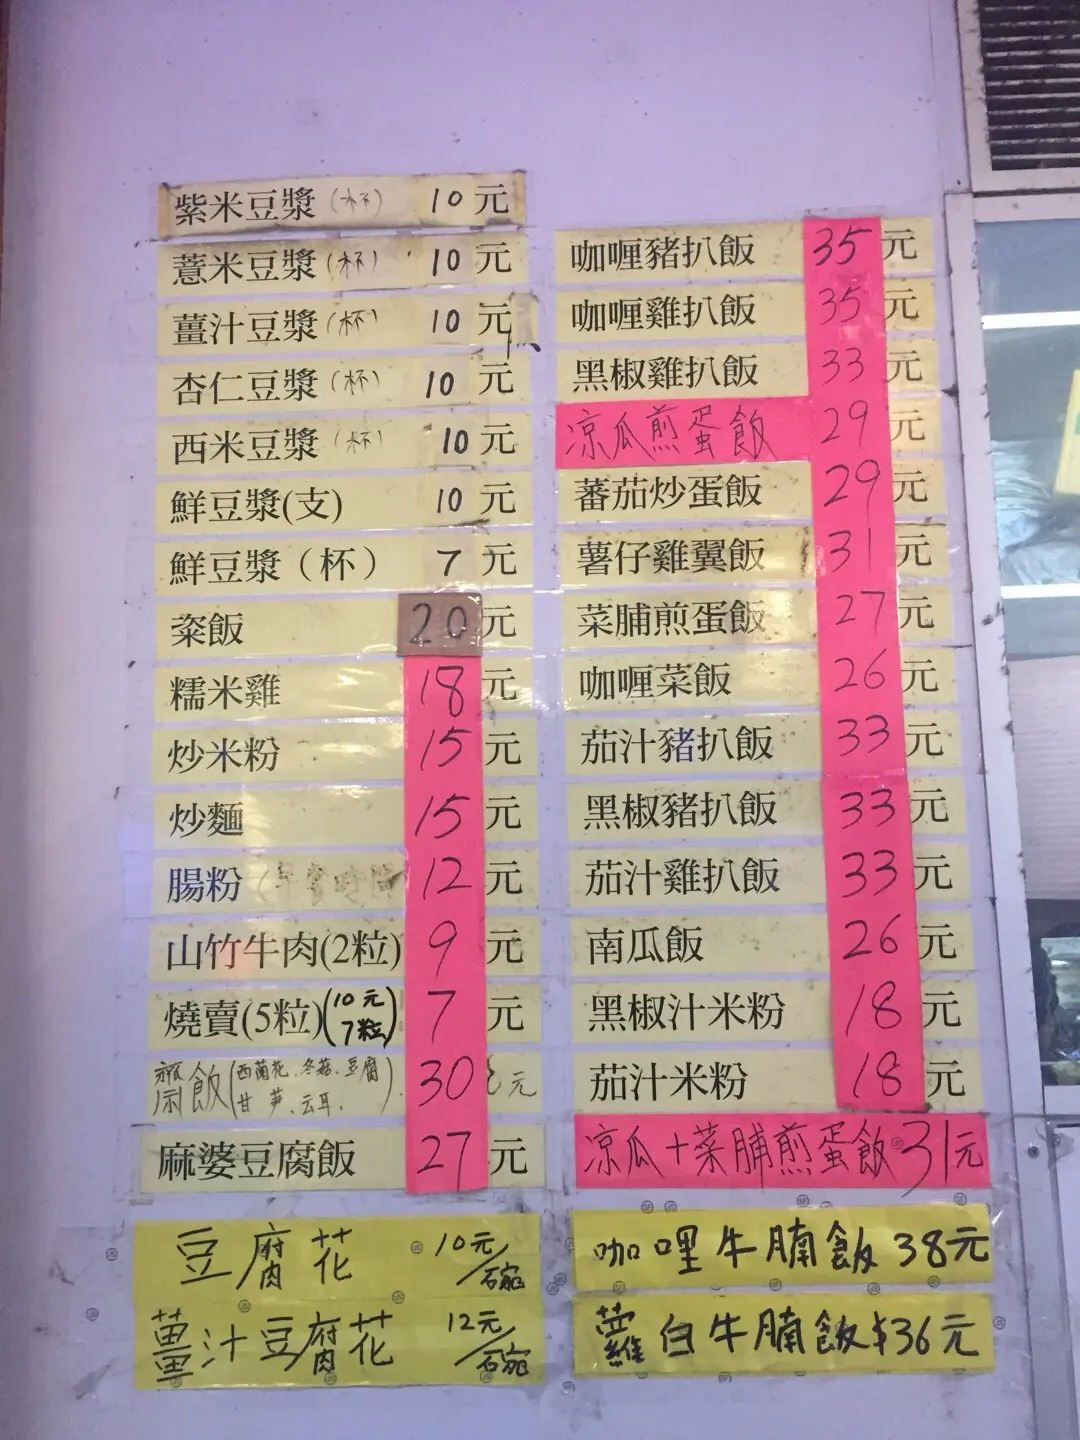 紫米豆漿(杯) 10元
薏米豆漿(杯) 10元
薑汁豆漿(杯) 10元
杏仁豆漿(杯) 10元
西米豆漿(杯) 10元
鮮豆漿(支) 10元
鮮豆漿(杯) 7元
粢飯 20元
糯米雞 18元
炒米粉 15元
炒麵 15元
腸粉 12元
山竹牛肉(2粒) 9元
燒賣(5粒)(10元7粒) 7元
飯(西蘭花、冬菇、豆腐 30元
甘笋、云耳、)
麻婆豆腐飯 27元
豆腐花 10元/碗
薑汁豆腐花 12元/碗
咖喱豬扒飯 35元
咖喱雞扒飯 35元
黑椒雞扒飯 33元
凉瓜煎蛋飯 29元
蕃茄炒蛋飯 29元
薯仔雞翼飯 31元
菜脯煎蛋飯 27元
咖喱菜飯 26元
茄汁豬扒飯 33元
黑椒豬扒飯 33元
茄汁雞扒飯 33元
南瓜飯 26元
黑椒汁米粉 18元
茄汁米粉 18元
凉瓜+菜脯煎蛋飯 31元
咖哩牛腩飯 38元
蘿白牛腩飯 $36元